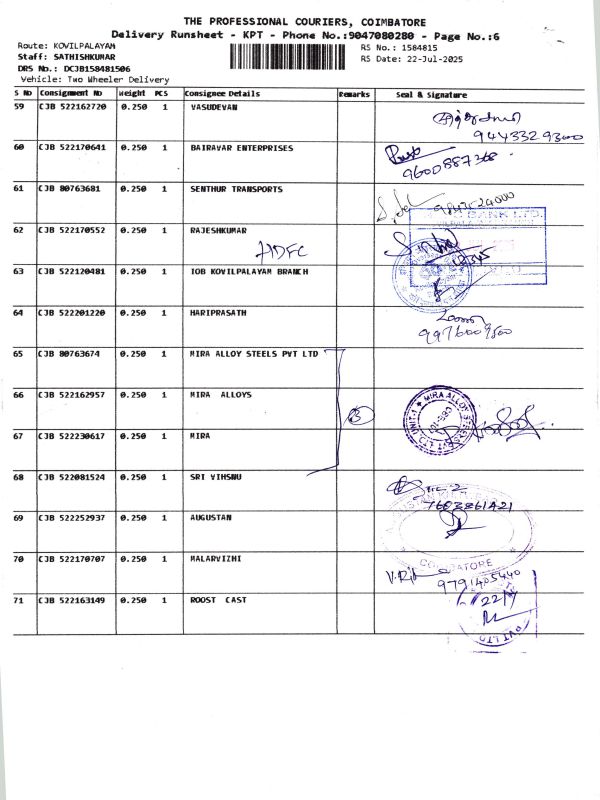 THE PROFESSIONAL COURIERS, COIMBATORE
Delivery Runsheet - KPT - Phone No.:9047080280 - Page No.:6
Route: KOVILPALAYAM
RS No.: 1584815
Staff: SATHISHKUMAR
RS Date: 22-Jul-2025
DRS No.: DCJB158481506
Vehicle: Two Wheeler Delivery
S NO Consignment NO Weight PCS Consignee Details Remarks Seal & Signature
59 CJB 522162720 0.250 1 VASUDEVAN
9443329300
60 CJB 522170641 0.250 1 BAIRAVAR ENTERPRISES
9600887368
61 CJB 80763681 0.250 1 SENTHUR TRANSPORTS
62 CJB 522170552 0.250 1 RAJESHKUMAR
HDFC
BANK LTD.
63 CJB 522120481 0.250 1 IOB KOVILPALAYAM BRANCH
64 CJB 522201220 0.250 1 HARIPRASATH
65 CJB 80763674 0.250 1 MIRA ALLOY STEELS PVT LTD
66 CJB 522162957 0.250 1 MIRA ALLOYS
3
MIRA ALLOY STEELS PVT LTD UNIT-1
67 CJB 522230617 0.250 1 MIRA
68 CJB 522081524 0.250 1 SRI VIHSNU
7603861421
69 CJB 522252937 0.250 1 AUGUSTAN
COIMBATORE
70 CJB 522170707 0.250 1 MALARVIZHI
9791405440
71 CJB 522163149 0.250 1 ROOST CAST
22/7
PVT LTD